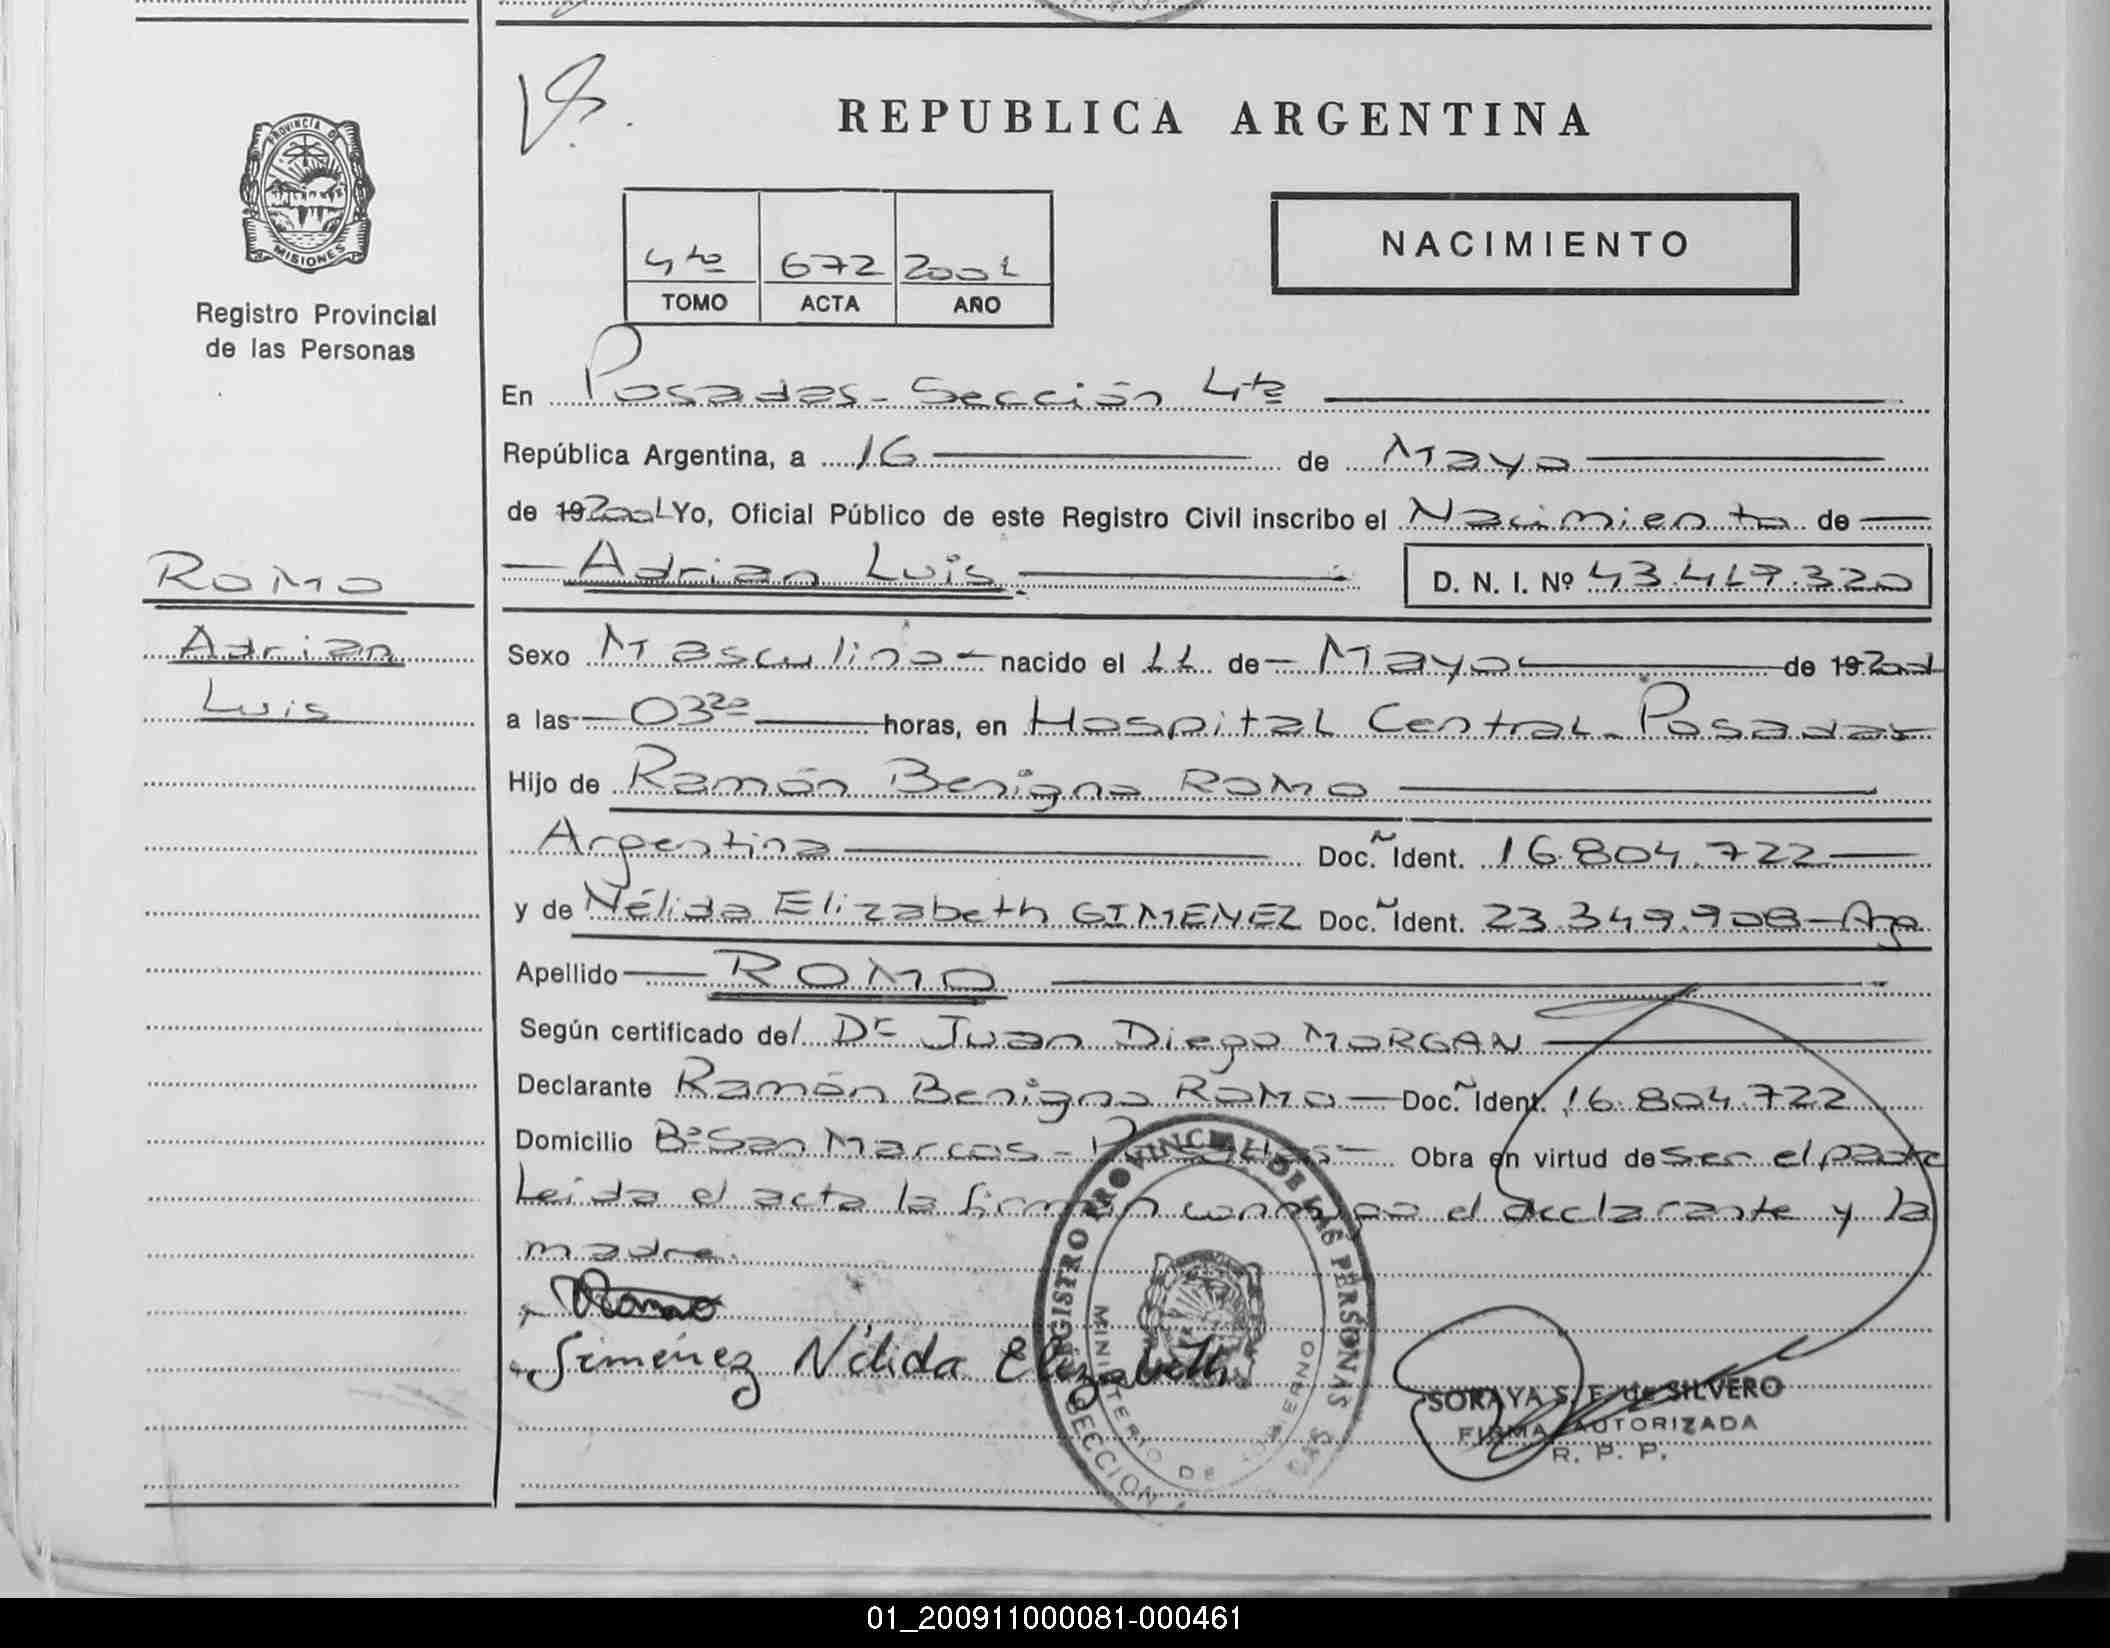 REPUBLICA ARGENTINA
PROVINCIA DE
MISIONES
Registro Provincial
de las Personas
4to 672 2001
TOMO ACTA AÑO
NACIMIENTO
En Posadas - Sección 4ta
República Argentina, a 16 de Mayo
de 19 2001 Yo, Oficial Público de este Registro Civil inscribo el Nacimiento de
Adrian Luis D. N. I. Nº 43.417.320
ROMO
Adrian
Luis
Sexo Masculino nacido el 11 de Mayo de 19 2001
a las 03 20 horas, en Hospital Central - Posadas
Hijo de Ramón Benigno ROMO
Argentina Doc. Ident. 16.804.722
y de Nélida Elizabeth GIMENEZ Doc. Ident. 23.349.908 - Arg.
Apellido ROMO
Según certificado del Dr Juan Diego MORGAN
Declarante Ramón Benigno ROMO - Doc. Ident. 16.804.722
Domicilio Bº San Marcos - Posadas Obra en virtud de ser el padre
Leida el acta la firman conmigo el declarante y la
madre.
Romo
Gimenez Nélida Elizabeth
REGISTRO PROVINCIAL DE LAS PERSONAS
MINISTERIO DE GOBIERNO
SECCION
SORAYA S. F. de SILVERO
FIRMA AUTORIZADA
R. P. P.
01_200911000081-000461